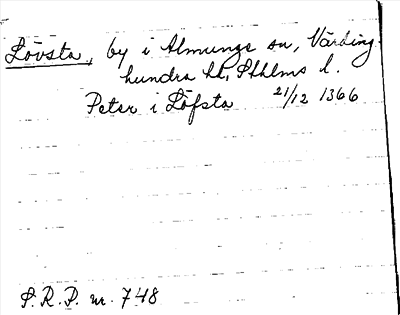 Lövsta, by i Almunge sn, Närding-
hundra hd, Sthlms l.
Peter i Löfsta 21/12 1366
S.R.P. nr. 748